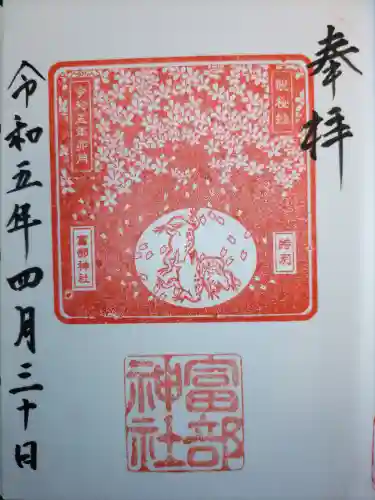 奉拝
令和五年卯月
富部神社
富部神社
令和五年四月三十日